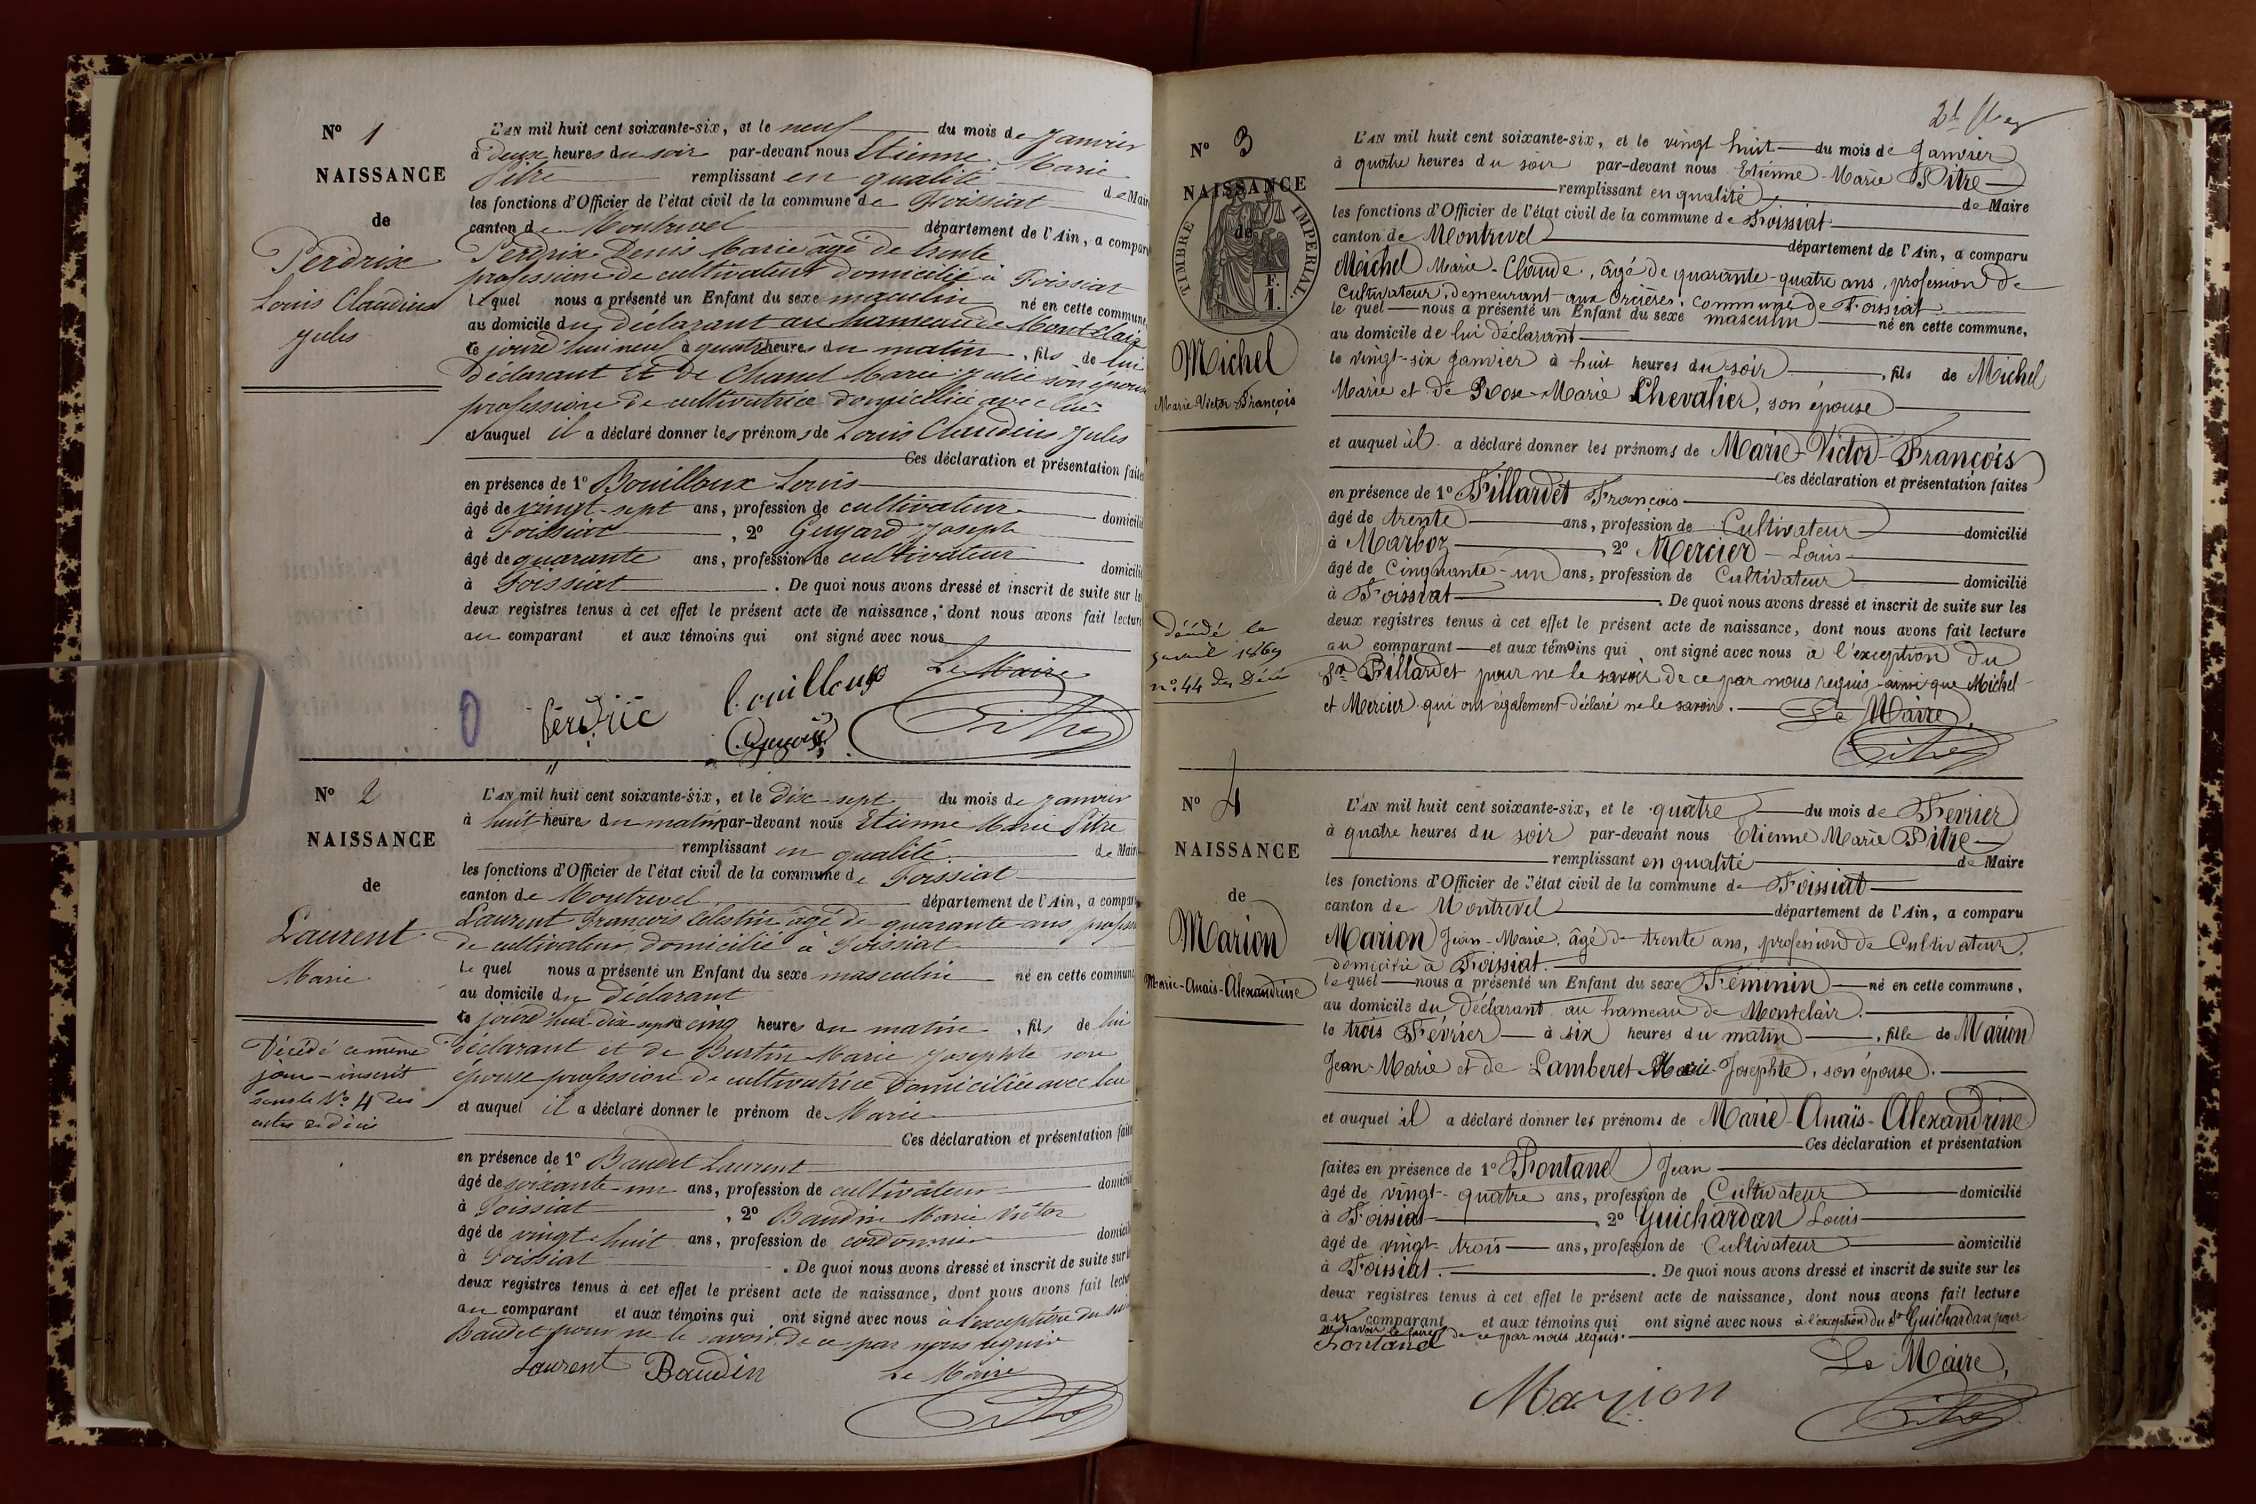 N° 1
NAISSANCE
de
Perdrix
Louis Claudius
Jules
L'AN mil huit cent soixante-six, et le neuf du mois de Janvier
à deux heures du soir par-devant nous Etienne Marie
Pitre remplissant en qualité de Maire
les fonctions d'Officier de l'état civil de la commune de Foissiat
canton de Montrevel département de l'Ain, a comparu
Perdrix Denis Marie âgé de trente
profession de cultivateur domicilié à Foissiat
lequel nous a présenté un Enfant du sexe masculin né en cette commune,
au domicile du déclarant au hameau de Montclair
ce jourd'hui neuf à quatre heures du matin, fils de lui
déclarant et de Chanel Marie Julie son épouse
profession de cultivatrice domiciliée avec lui
et auquel il a déclaré donner les prénoms de Louis Claudius Jules
Ces déclaration et présentation faites
en présence de 1° Bouilloux Louis
âgé de vingt-sept ans, profession de cultivateur domicilié
à Foissiat, 2° Guyard Joseph
âgé de quarante ans, profession de cultivateur domicilié
à Foissiat. De quoi nous avons dressé et inscrit de suite sur les
deux registres tenus à cet effet le présent acte de naissance, dont nous avons fait lecture
au comparant et aux témoins qui ont signé avec nous
Le Maire
Pitre
N° 2
NAISSANCE
de
Laurent
Marie
Décédé ce même
jour - inscrit
sous le N° 4 des
actes de décès
L'AN mil huit cent soixante-six, et le dix-sept du mois de Janvier
à huit heures du matin par-devant nous Etienne Marie Pitre
remplissant en qualité de Maire
les fonctions d'Officier de l'état civil de la commune de Foissiat
canton de Montrevel département de l'Ain, a comparu
Laurent François Célestin âgé de quarante ans profession
de cultivateur domicilié à Foissiat
le quel nous a présenté un Enfant du sexe masculin né en cette commune
au domicile du déclarant
ce jourd'hui dix-sept à cinq heures du matin, fils de lui
déclarant et de Burtin Marie Josephte son
épouse profession de cultivatrice domiciliée avec lui
et auquel il a déclaré donner le prénom de Marie
Ces déclaration et présentation faites
en présence de 1° Baudet Laurent
âgé de soixante-un ans, profession de cultivateur domicilié
à Foissiat, 2° Baudin Marie Victor
âgé de vingt-huit ans, profession de cordonnier domicilié
à Foissiat. De quoi nous avons dressé et inscrit de suite sur les
deux registres tenus à cet effet le présent acte de naissance, dont nous avons fait lecture
au comparant et aux témoins qui ont signé avec nous à l'exception du sieur
Baudet pour ne le savoir de ce par nous requis
Laurent Baudin Le Maire
Pitre
N° 3
NAISSANCE
de
TIMBRE IMPÉRIAL
Michel
Marie-Victor-François
décédé le
avril 1869
n° 44 des Décès
L'AN mil huit cent soixante-six, et le vingt huit du mois de Janvier
à quatre heures du soir par-devant nous Etienne-Marie Pitre
remplissant en qualité de Maire
les fonctions d'Officier de l'état civil de la commune de Foissiat
canton de Montrevel département de l'Ain, a comparu
Michel Marie-Claude, âgé de quarante-quatre ans, profession de
Cultivateur, demeurant aux Orcières, commune de Foissiat
le quel nous a présenté un Enfant du sexe masculin né en cette commune,
au domicile de lui déclarant
le vingt-six Janvier à huit heures du soir, fils de Michel
Marie et de Rose-Marie Chevalier, son épouse
et auquel il a déclaré donner les prénoms de Marie-Victor-François
Ces déclaration et présentation faites
en présence de 1° Fillardet François
âgé de trente ans, profession de Cultivateur domicilié
à Marboz, 2° Mercier Louis
âgé de Cinquante-un ans, profession de Cultivateur domicilié
à Foissiat. De quoi nous avons dressé et inscrit de suite sur les
deux registres tenus à cet effet le présent acte de naissance, dont nous avons fait lecture
au comparant et aux témoins qui ont signé avec nous à l'exception du
Sr Fillardet pour ne le savoir de ce par nous requis ainsi que Michel
et Mercier qui ont également déclaré ne le savoir. Le Maire,
Pitre
N° 4
NAISSANCE
de
Marion
Marie-Anaïs-Alexandrine
L'AN mil huit cent soixante-six, et le quatre du mois de Février
à quatre heures du soir par-devant nous Etienne Marie Pitre
remplissant en qualité de Maire
les fonctions d'Officier de l'état civil de la commune de Foissiat
canton de Montrevel département de l'Ain, a comparu
Marion Jean-Marie, âgé de trente ans, profession de Cultivateur,
domicilié à Foissiat.
le quel nous a présenté un Enfant du sexe Féminin né en cette commune,
au domicile du déclarant au hameau de Montclair.
le trois Février à six heures du matin, fille de Marion
Jean-Marie et de Lamberet Marie Josephte, son épouse.
et auquel il a déclaré donner les prénoms de Marie-Anaïs-Alexandrine
Ces déclaration et présentation
faites en présence de 1° Fontanel Jean
âgé de vingt-quatre ans, profession de Cultivateur domicilié
à Foissiat, 2° Guichardan Louis
âgé de vingt-trois ans, profession de Cultivateur domicilié
à Foissiat. De quoi nous avons dressé et inscrit de suite sur les
deux registres tenus à cet effet le présent acte de naissance, dont nous avons fait lecture
au comparant et aux témoins qui ont signé avec nous à l'exception du Sr Guichardan pour
ne savoir le faire de ce par nous requis.
Fontanel
Le Maire,
Marion
Pitre